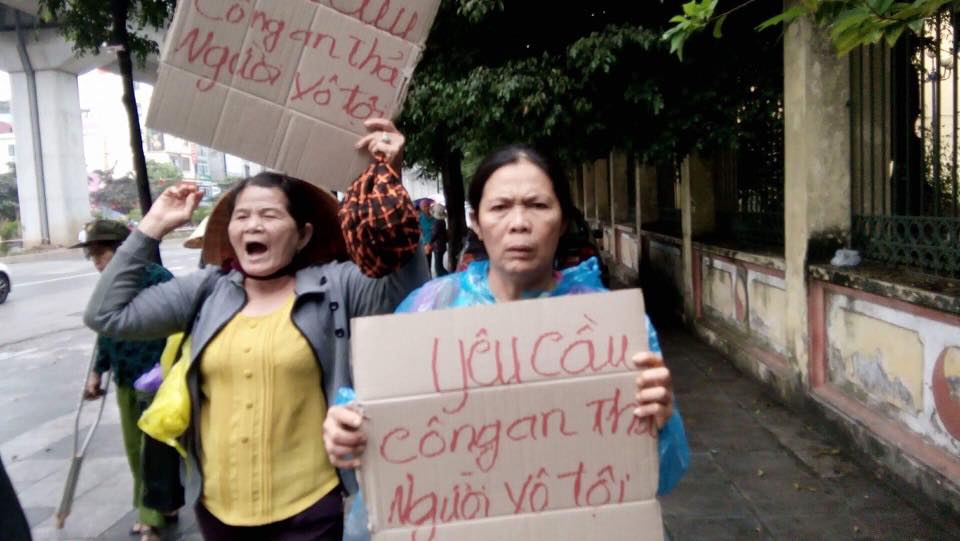 Cầu
Công an thả
Người vô tội
yêu cầu
công an thả
Người vô tội